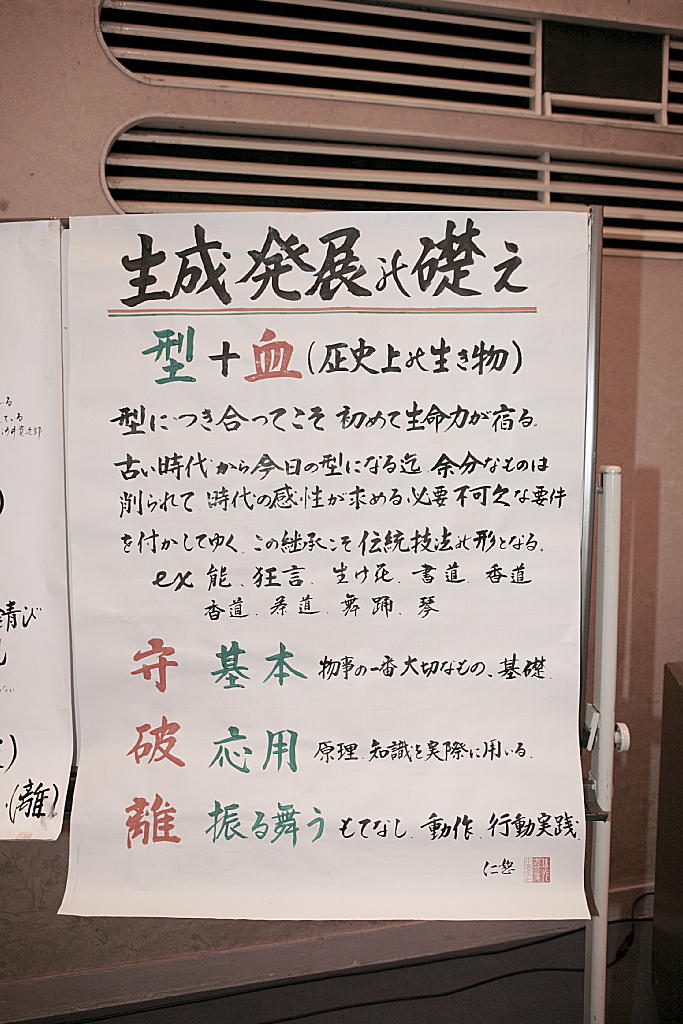 生成発展の礎え
型+血(歴史上の生き物)
型につき合ってこそ初めて生命力が宿る。
古い時代から今日の型になる迄、余分なものは
削られて、時代の感性が求める必要不可欠な要件
を付加してゆく、この継承こそ伝統技法の形となる。
ex 能、狂言、生け花、書道、香道
香道、茶道、舞踊、琴
守 基本 物事の一番大切なもの、基礎。
破 応用 原理、知識を実際に用いる。
離 振る舞う もてなし、動作、行動実践
仁
錆び
(離)